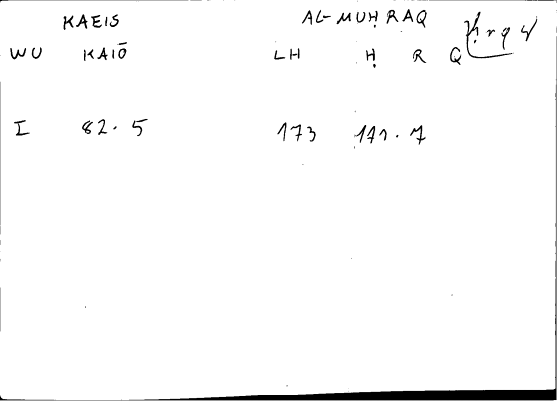 KAEIS AL-MUḤRAQ ḥrq
WU KAIŌ LH Ḥ R Q
I 82.5 173 141.7